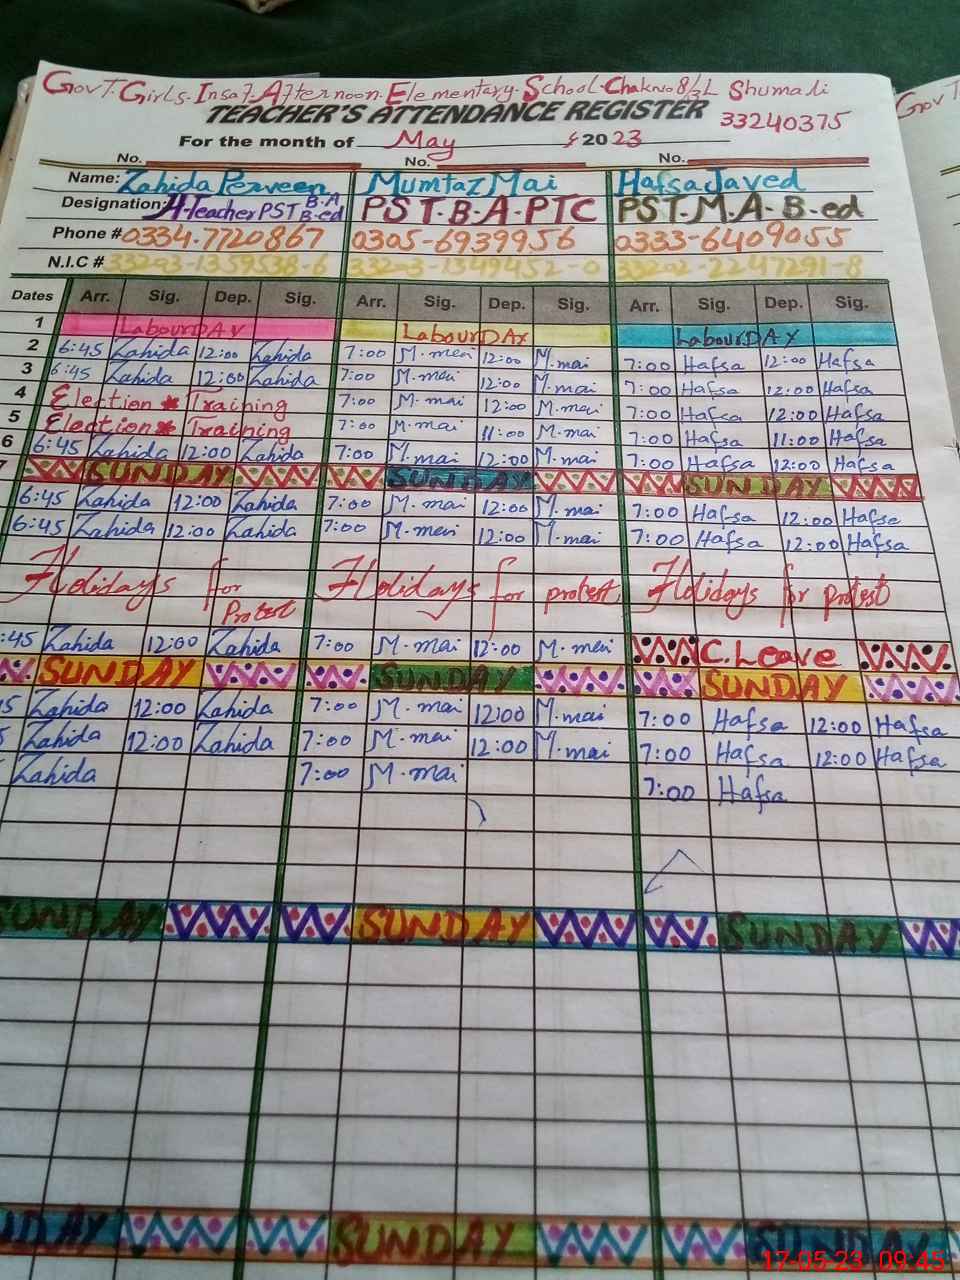 GovT. Girls. Insaf. Afternoon. Elementary. School. Chakno 8/3L Shumali
TEACHER'S ATTENDANCE REGISTER 33240375
For the month of May 2023
No. No. No.
Name: Zahida Perveen Mumtaz Mai Hafsa Javed
Designation: H-Teacher PST B.A B-ed PST-B-A-PTC PST-M.A-B-ed
Phone # 0334-7720867 0305-6939956 0333-6409055
N.I.C #
Dates Arr. Sig. Dep. Sig. Arr. Sig. Dep. Sig. Arr. Sig. Dep. Sig.
1 LabourDAY LabourDAY LabourDAY
2 6:45 Zahida 12:00 Zahida 7:00 M.mai 12:00 M.mai 7:00 Hafsa 12:00 Hafsa
3 6:45 Zahida 12:00 Zahida 7:00 M.mai 12:00 M.mai 7:00 Hafsa 12:00 Hafsa
4 Election Training 7:00 M.mai 12:00 M.mai 7:00 Hafsa 12:00 Hafsa
5 Election Training 7:00 M.mai 11:00 M.mai 7:00 Hafsa 11:00 Hafsa
6 6:45 Zahida 12:00 Zahida 7:00 M.mai 12:00 M.mai 7:00 Hafsa 12:00 Hafsa
7 SUNDAY SUNDAY SUNDAY
6:45 Zahida 12:00 Zahida 7:00 M.mai 12:00 M.mai 7:00 Hafsa 12:00 Hafsa
6:45 Zahida 12:00 Zahida 7:00 M.mai 12:00 M.mai 7:00 Hafsa 12:00 Hafsa
Holidays for Protest Holidays for protest Holidays for protest
:45 Zahida 12:00 Zahida 7:00 M.mai 12:00 M.mai C.Leave
SUNDAY SUNDAY SUNDAY
5 Zahida 12:00 Zahida 7:00 M.mai 12:00 M.mai 7:00 Hafsa 12:00 Hafsa
Zahida 12:00 Zahida 7:00 M.mai 12:00 M.mai 7:00 Hafsa 12:00 Hafsa
Zahida 7:00 M.mai 7:00 Hafsa
SUNDAY SUNDAY SUNDAY
NDAY SUNDAY SUNDAY
17-05-23 09:45